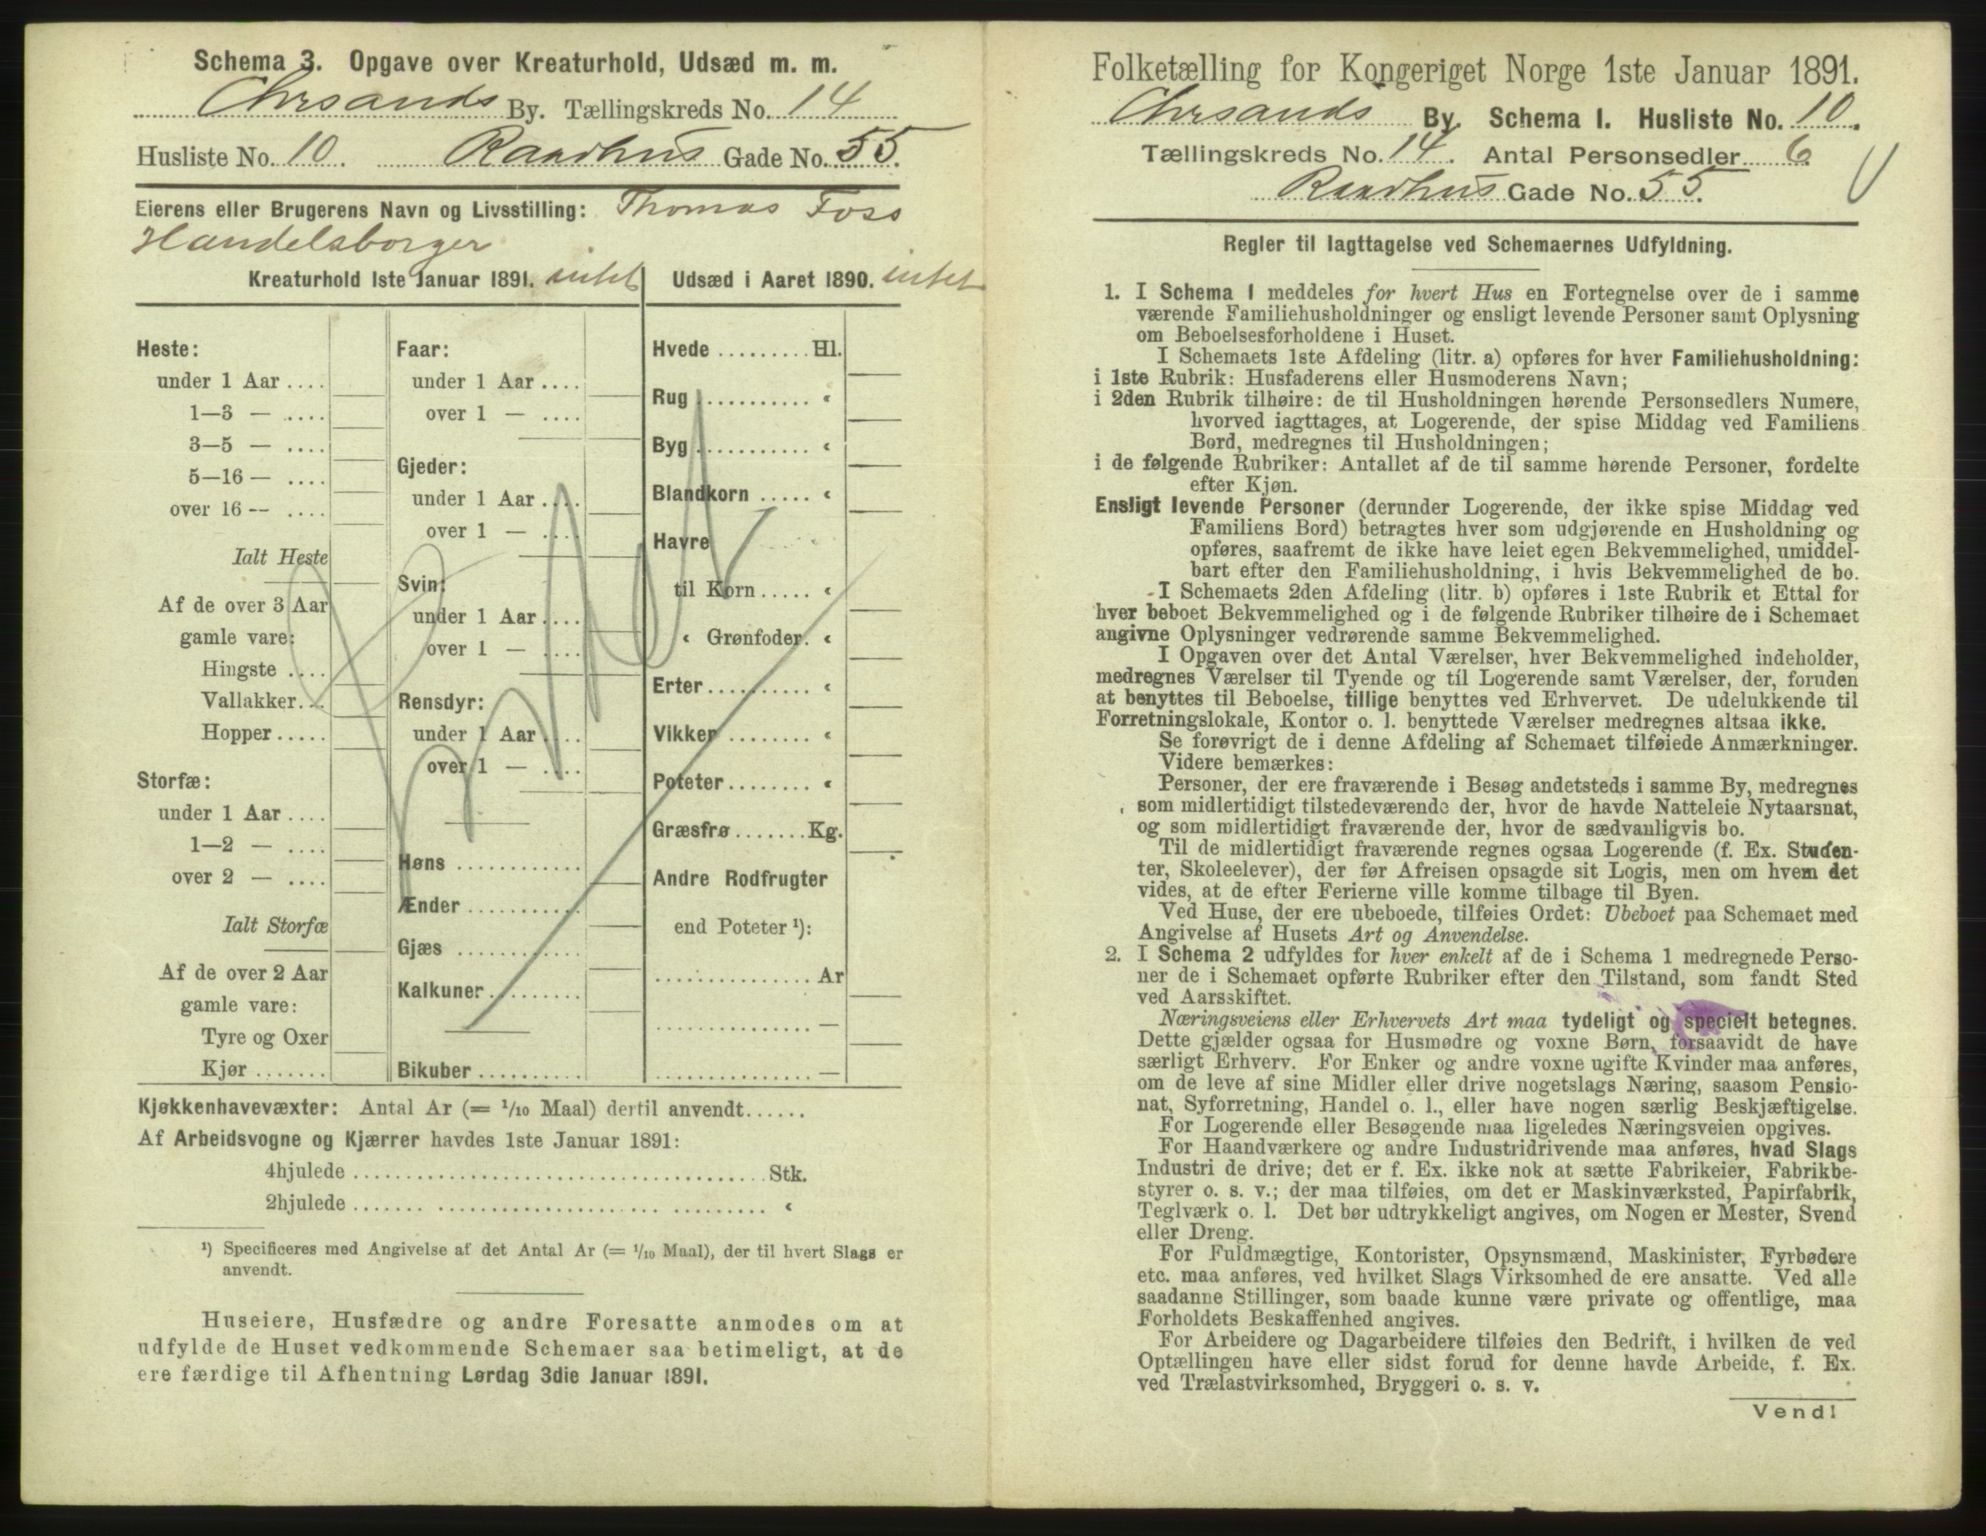 Schema 3. Opgave over Kreaturhold, Udsæd m. m.
Chrsands By. Tællingskreds No. 14
Husliste No. 10. Raadhus Gade No. 55.
Eierens eller Brugerens Navn og Livsstilling: Thomas Foss
Handelsborger
Kreaturhold 1ste Januar 1891. intet
Udsæd i Aaret 1890. intet
Heste:
under 1 Aar ....
1—3 — ....
3—5 — ....
5—16 — ....
over 16 -- ....
Ialt Heste
Af de over 3 Aar
gamle vare:
Hingste ....
Vallakker....
Hopper.....
Storfæ:
under 1 Aar ....
1—2 — ....
over 2 — ....
Ialt Storfæ
Af de over 2 Aar
gamle vare:
Tyre og Oxer
Kjør.......
Faar:
under 1 Aar ....
over 1 — ....
Gjeder:
under 1 Aar ....
over 1 — ....
Svin:
under 1 Aar ....
over 1 — ....
Rensdyr:
under 1 Aar ....
over 1 — ....
Høns ..........
Ænder ..........
Gjæs ..........
Kalkuner........
Bikuber.........
Hvede .........Hl.
Rug .......... "
Byg .......... "
Blandkorn ..... "
Havre
til Korn..... "
" Grønfoder. "
Erter......... "
Vikker ........ "
Poteter........ "
Græsfrø.......Kg.
Andre Rodfrugter
end Poteter ¹):
...............Ar
...............—
...............—
Kjøkkenhavevæxter: Antal Ar (= 1/10 Maal) dertil anvendt......
Af Arbeidsvogne og Kjærrer havdes 1ste Januar 1891:
4hjulede ........................................Stk.
2hjulede ........................................ "
¹) Specificeres med Angivelse af det Antal Ar (= 1/10 Maal), der til hvert Slags er
anvendt.
Huseiere, Husfædre og andre Foresatte anmodes om at
udfylde de Huset vedkommende Schemaer saa betimeligt, at de
ere færdige til Afhentning Lørdag 3die Januar 1891.
Folketælling for Kongeriget Norge 1ste Januar 1891.
Chrsands By. Schema I. Husliste No. 10.
Tællingskreds No. 14. Antal Personsedler 6
Raadhus Gade No. 55.
Regler til Iagttagelse ved Schemaernes Udfyldning.
1. I Schema I meddeles for hvert Hus en Fortegnelse over de i samme
værende Familiehusholdninger og ensligt levende Personer samt Oplysning
om Beboelsesforholdene i Huset.
I Schemaets 1ste Afdeling (litr. a) opføres for hver Familiehusholdning:
i 1ste Rubrik: Husfaderens eller Husmoderens Navn;
i 2den Rubrik tilhøire: de til Husholdningen hørende Personsedlers Numere,
hvorved iagttages, at Logerende, der spise Middag ved Familiens
Bord, medregnes til Husholdningen;
i de følgende Rubriker: Antallet af de til samme hørende Personer, fordelte
efter Kjøn.
Ensligt levende Personer (derunder Logerende, der ikke spise Middag ved
Familiens Bord) betragtes hver som udgjørende en Husholdning og
opføres, saafremt de ikke have leiet egen Bekvemmelighed, umiddel-
bart efter den Familiehusholdning, i hvis Bekvemmelighed de bo.
I Schemaets 2den Afdeling (litr. b) opføres i 1ste Rubrik et Ettal for
hver beboet Bekvemmelighed og i de følgende Rubriker tilhøire de i Schemaet
angivne Oplysninger vedrørende samme Bekvemmelighed.
I Opgaven over det Antal Værelser, hver Bekvemmelighed indeholder,
medregnes Værelser til Tyende og til Logerende samt Værelser, der, foruden
at benyttes til Beboelse, tillige benyttes ved Erhvervet. De udelukkende til
Forretningslokale, Kontor o. l. benyttede Værelser medregnes altsaa ikke.
Se forøvrigt de i denne Afdeling af Schemaet tilføiede Anmærkninger.
Videre bemærkes:
Personer, der ere fraværende i Besøg andetsteds i samme By, medregnes
som midlertidigt tilstedeværende der, hvor de havde Natteleie Nytaarsnat,
og som midlertidigt fraværende der, hvor de sædvanligvis bo.
Til de midlertidigt fraværende regnes ogsaa Logerende (f. Ex. Studen-
ter, Skoleelever), der før Afreisen opsagde sit Logis, men om hvem det
vides, at de efter Ferierne ville komme tilbage til Byen.
Ved Huse, der ere ubeboede, tilføies Ordet: Ubeboet paa Schemaet med
Angivelse af Husets Art og Anvendelse.
2. I Schema 2 udfyldes for hver enkelt af de i Schema 1 medregnede Perso-
ner de i Schemaet opførte Rubriker efter den Tilstand, som fandt Sted
ved Aarsskiftet.
Næringsveiens eller Erhvervets Art maa tydeligt og specielt betegnes.
Dette gjælder ogsaa for Husmødre og voxne Børn, forsaavidt de have
særligt Erhverv. For Enker og andre voxne ugifte Kvinder maa anføres,
om de leve af sine Midler eller drive nogetslags Næring, saasom Pensio-
nat, Syforretning, Handel o. l., eller have nogen særlig Beskjæftigelse.
For Logerende eller Besøgende maa ligeledes Næringsveien opgives.
For Haandværkere og andre Industridrivende maa anføres, hvad Slags
Industri de drive; det er f. Ex. ikke nok at sætte Fabrikeier, Fabrikbe-
styrer o. s. v.; der maa tilføies, om det er Maskinværksted, Papirfabrik,
Teglværk o. l. Det bør udtrykkeligt angives, om Nogen er Mester, Svend
eller Dreng.
For Fuldmægtige, Kontorister, Opsynsmænd, Maskinister, Fyrbødere
etc. maa anføres, ved hvilket Slags Virksomhed de ere ansatte. Ved alle
saadanne Stillinger, som baade kunne være private og offentlige, maa
Forholdets Beskaffenhed angives.
For Arbeidere og Dagarbeidere tilføies den Bedrift, i hvilken de ved
Optællingen have eller sidst forud for denne havde Arbeide, f. Ex.
ved Trælastvirksomhed, Bryggeri o. s. v.
Vend!